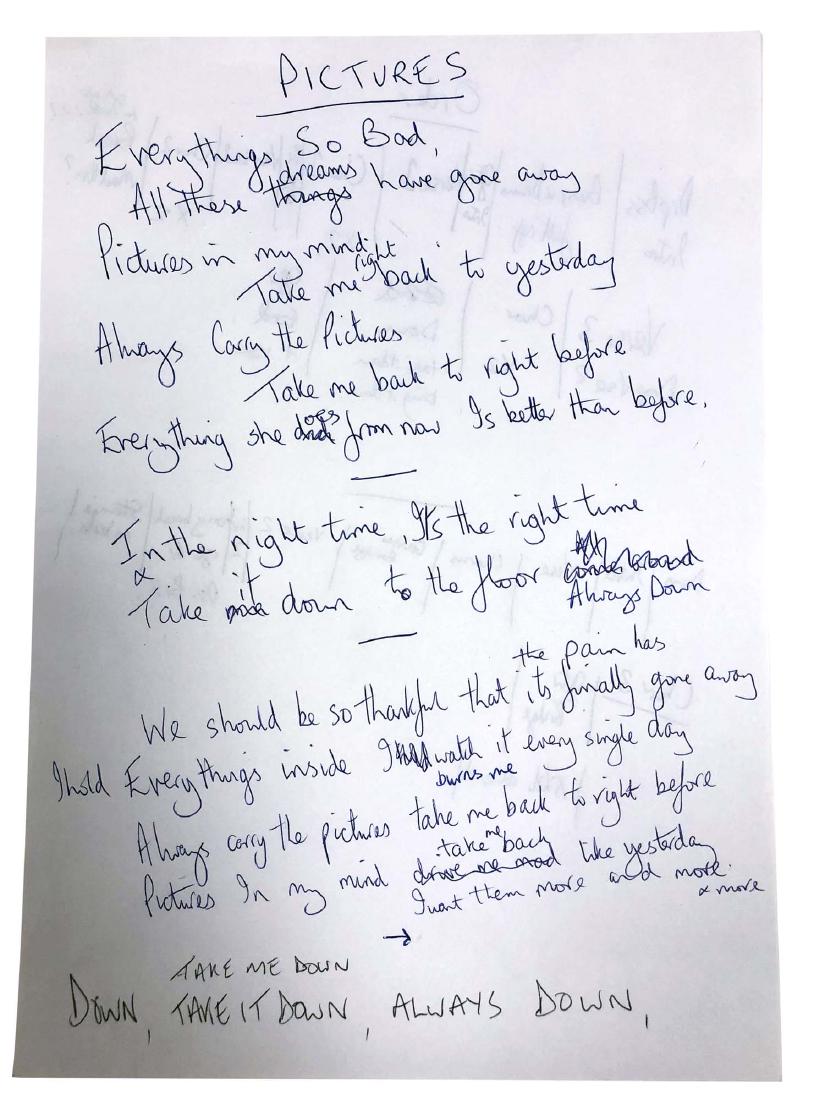 PICTURES
Everythings So Bad,
dreams
All these things have gone away
Pictures in my mind
right
Take me back to yesterday
Always Carry the Pictures
Take me back to right before
oes
Everything she did from now Is better than before.
In the right time, It's the right time
& it
Take down to the floor
Always Down
the pain has
We should be so thankful that its finally gone away
I hold Everythings inside I watch it every single day
burns me
Always carry the pictures take me back to right before
take me back
Pictures In my mind drive me mad like yesterday
I want them more and more
& more
→
TAKE ME DOWN
DOWN, TAKE IT DOWN, ALWAYS DOWN,